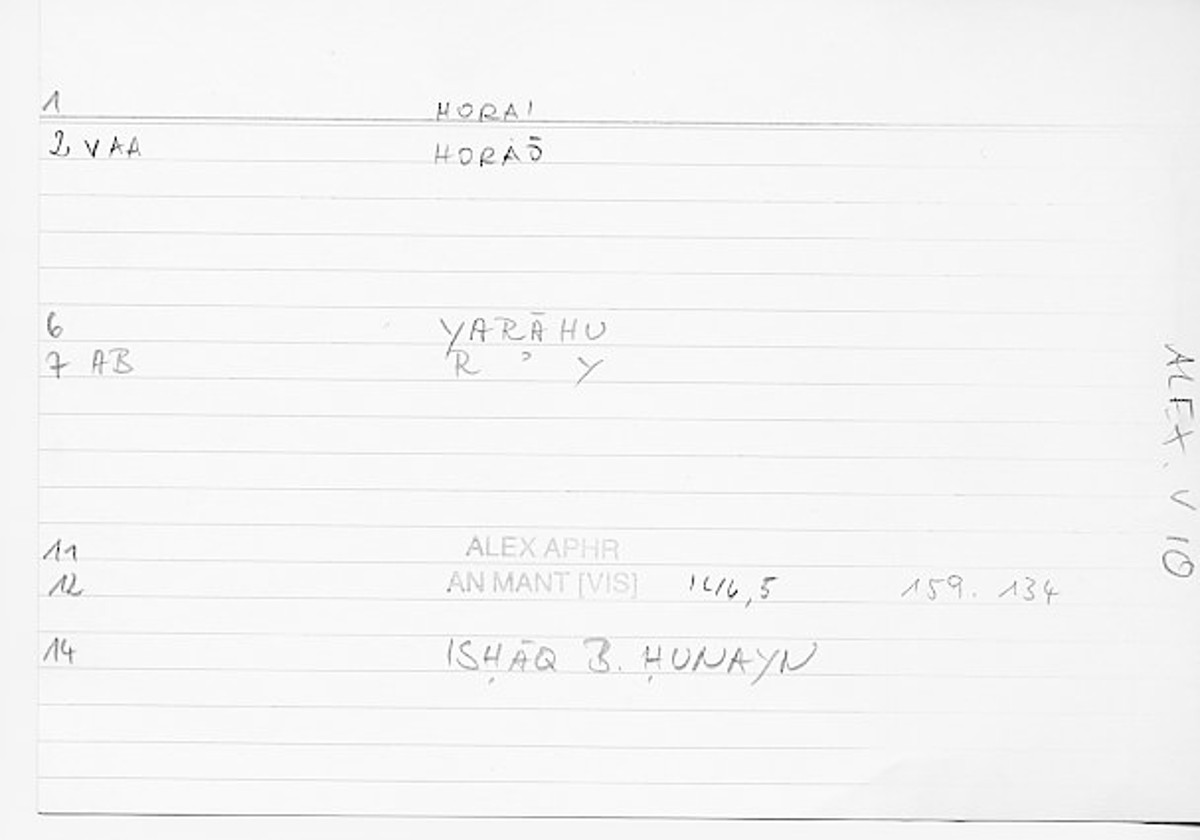 1 HORAI
2 VAA HORÁŌ
6 YARĀHU
7 AB R ʾ Y
11 ALEX APHR
12 AN MANT [VIS] 159. 134
14 ISḤĀQ B. ḤUNAYN
ALEX. V 10